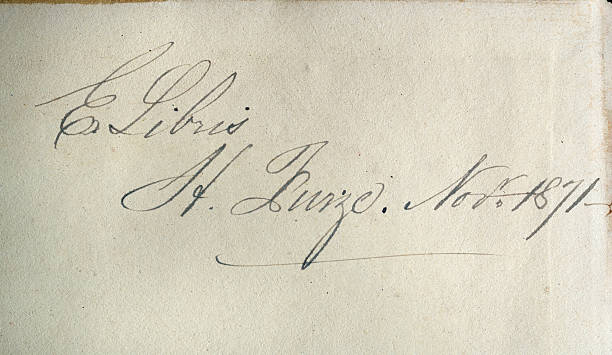 Ex Libris
H. Furze. Novr. 1871